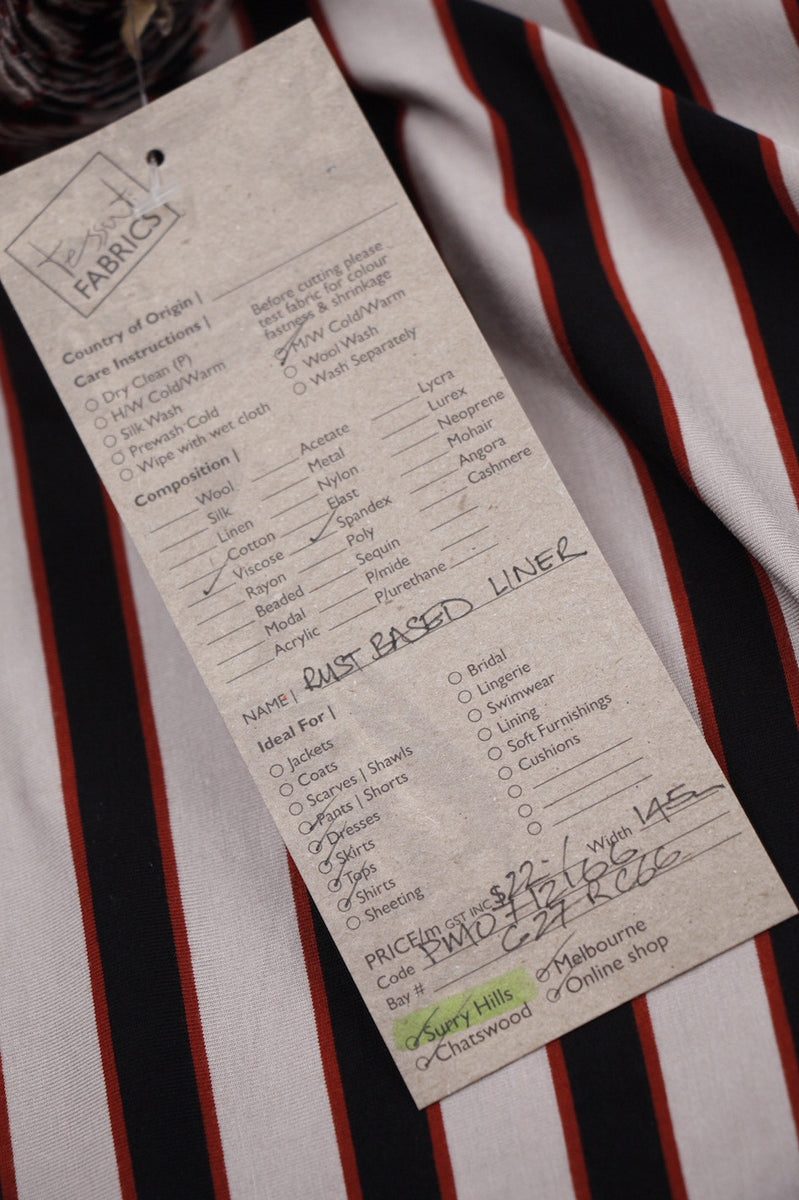 tessuti
FABRICS
Country of Origin |
Care Instructions |
Dry Clean (P)
H/W Cold/Warm
Silk Wash
Prewash Cold
Wipe with wet cloth
Before cutting please
test fabric for colour
fastness & shrinkage
M/W Cold/Warm
Wool Wash
Wash Separately
Composition |
Wool
Silk
Linen
Cotton
Viscose
Rayon
Beaded
Modal
Acrylic
Acetate
Metal
Nylon
Elast
Spandex
Poly
Sequin
P/mide
P/urethane
Lycra
Lurex
Neoprene
Mohair
Angora
Cashmere
NAME | RUST BASED LINER
Ideal For |
Jackets
Coats
Scarves | Shawls
Pants | Shorts
Dresses
Skirts
Tops
Shirts
Sheeting
Bridal
Lingerie
Swimwear
Lining
Soft Furnishings
Cushions
PRICE/m GST INC $22-/ Width 145
Code
Bay # C27 RC66
Surry Hills
Chatswood
Melbourne
Online shop